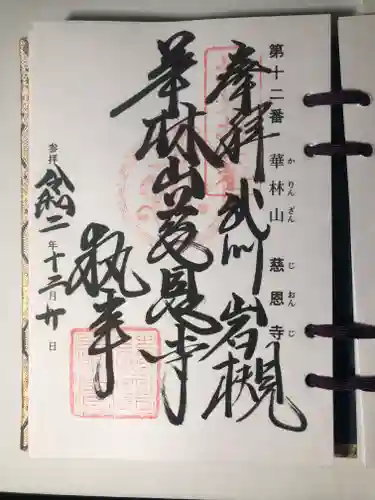 第十二番 華林山 慈恩寺
かりんざん じおんじ
奉拝 武州 岩槻
華林山慈恩寺
執事
参拝 令和二年十二月廿日